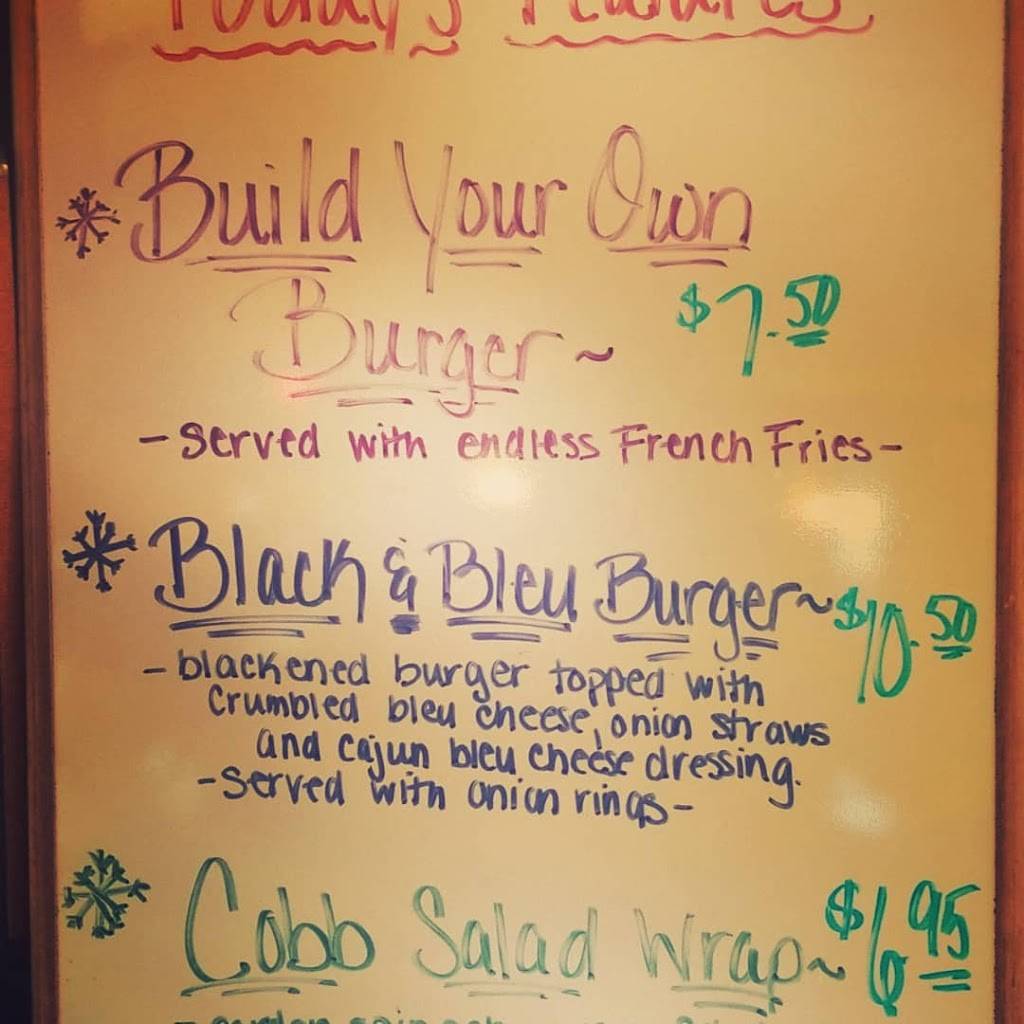 Today's Features
Build Your Own
Burger ~ $7.50
- Served with endless French Fries -
Black & Bleu Burger ~ $10.50
- blackened burger topped with
crumbled bleu cheese, onion straws
and cajun bleu cheese dressing.
- Served with onion rings -
Cobb Salad Wrap ~ $6.95